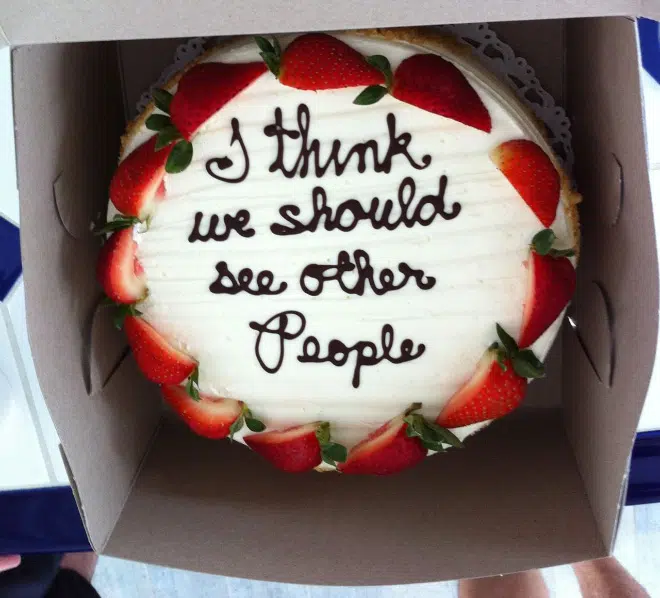 I think
we should
see other
People